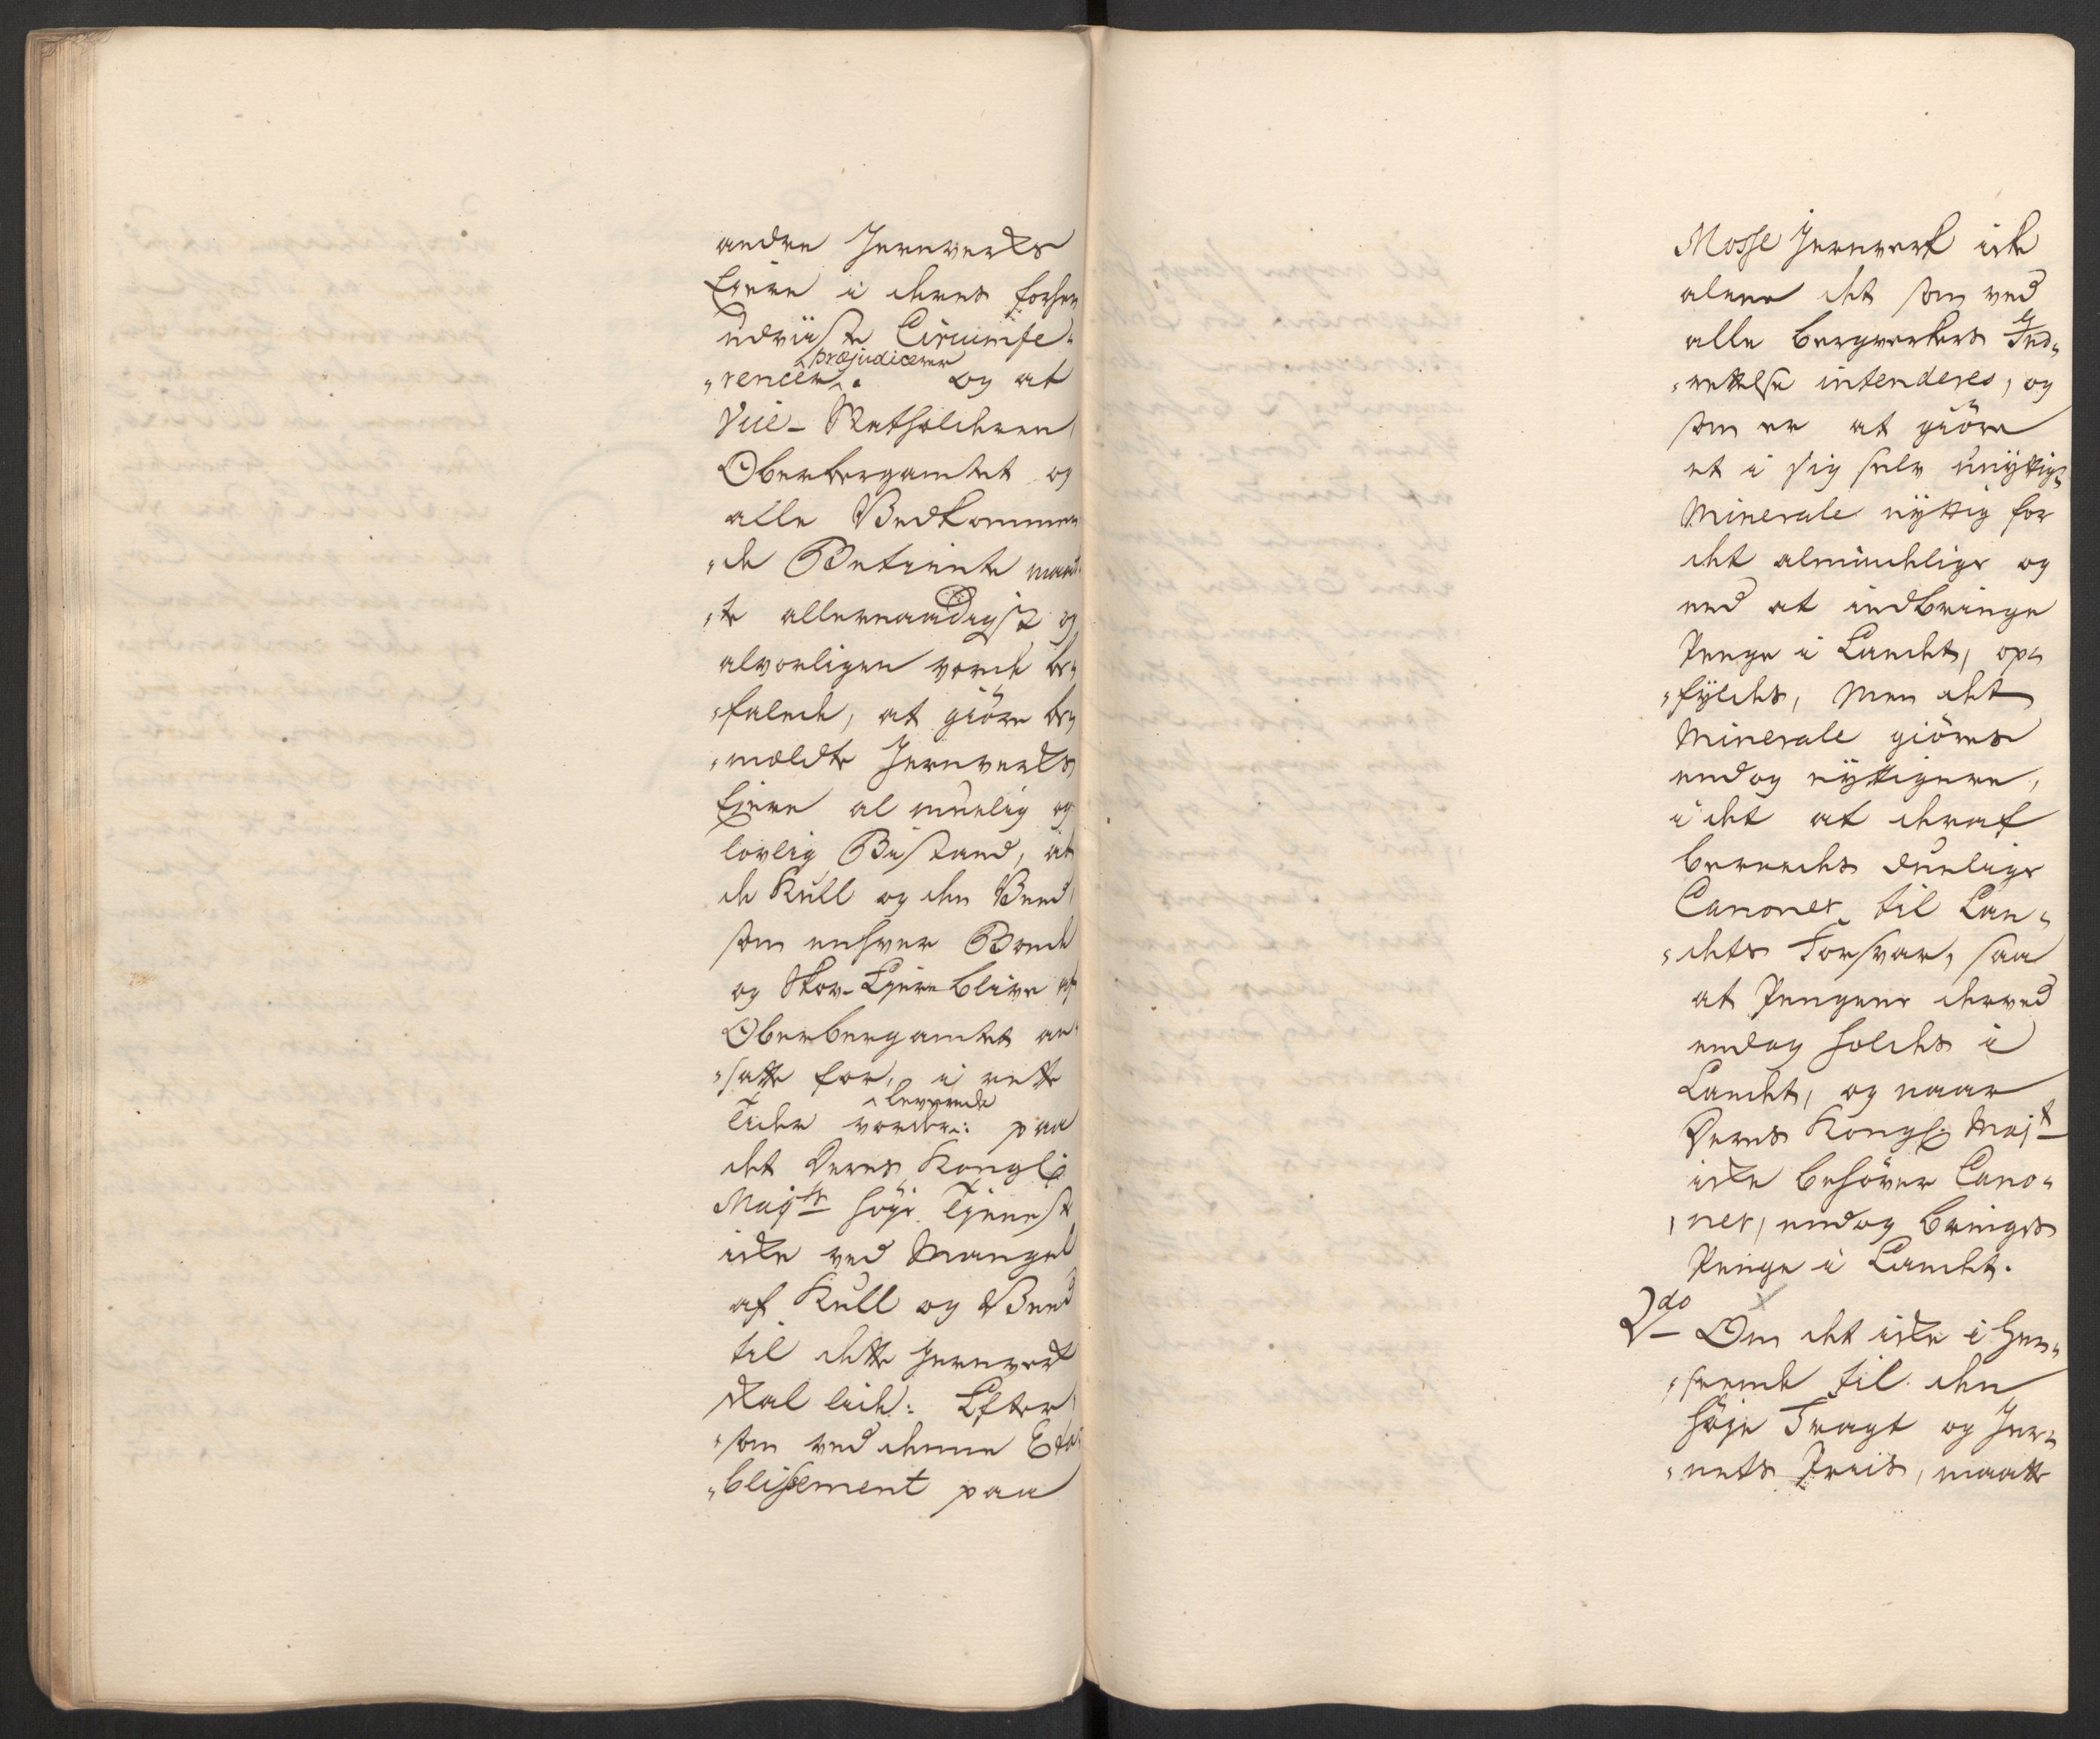 andre Jernverks
Ejere i deres forhen
udviiste Circumfe-
-rencer præjudicerer og at
Vice-Statholderen,
Oberbergamtet og
alle Vedkommen
-de Betiente maat-
-te allernaadigst og
alvorligen vorde be-
-falede, at giöre be-
-meldte Jernverks
Ejere al muelig og
lovlig Bistand, at
de Kull og den Veed,
som enhver Bonde
og Skov-Ejere blive af
Oberbergamtet an-
-satte for, i rette
Tider vorder leverede: paa
det Deres Kongl:
Majts höje Tjeneste
ikke ved Mangel
af Kull og Veed
til dette Jernverk
skal lide: Efter-
-som ved denne Eta-
-blissement paa
Mosse Jernverk ikke
alene det som ved
alle Bergverkers Ind-
-rettelse intenderes, og
som er at giöre
et i sig selv unyttig
Minerale nyttig for
det almindelige og
ved at indbringe
Penge i Landet, op-
-fyldes, men det
Minerale giöres
endog nyttigere,
i det at deraf
beredes duelige
Canoner til Lan-
-dets Forsvar, saa
at Pengene derved
endog holdes i
Landet, og naar
Deres Kongl: Majt
ikke behöver Cano-
-ner, endog bringes
Penge i Landet.
2do Om det ikke i Hen-
-seende til den
höje Fragt og Jer-
-nets Priis, maatte